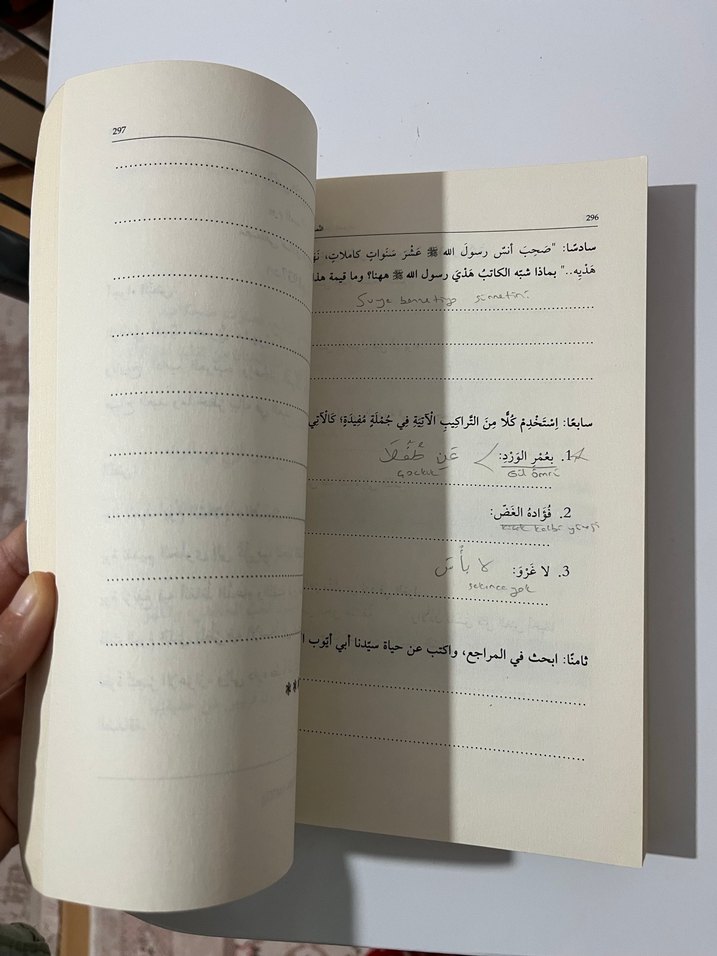 296
سادسًا: "صَحِبَ أنسٌ رسولَ الله ﷺ عَشْرَ سَنَواتٍ كاملاتٍ،
هَدْيِه.." بماذا شبّه الكاتبُ هَدْيَ رسول الله ﷺ ههنا؟ وما قيمة
Suya benzetiyo sünnetini
سابعًا: اِسْتَخْدِمْ كُلًّا مِنَ التَّراكِيبِ الْآتِيَةِ فِي جُمْلَةٍ مُفِيدَةٍ؛ كَالْآتِي
1. بعُمْرِ الوَرْدِ:
Gül ömrü
Çocuk
2. فُؤَادهُ الغَضّ:
kalbi
3. لا غَرْوَ: لا بأْسَ
sakınca yok
ثامنًا: ابحث في المراجع، واكتب عن حياة سيّدنا أبي أيّوب
297